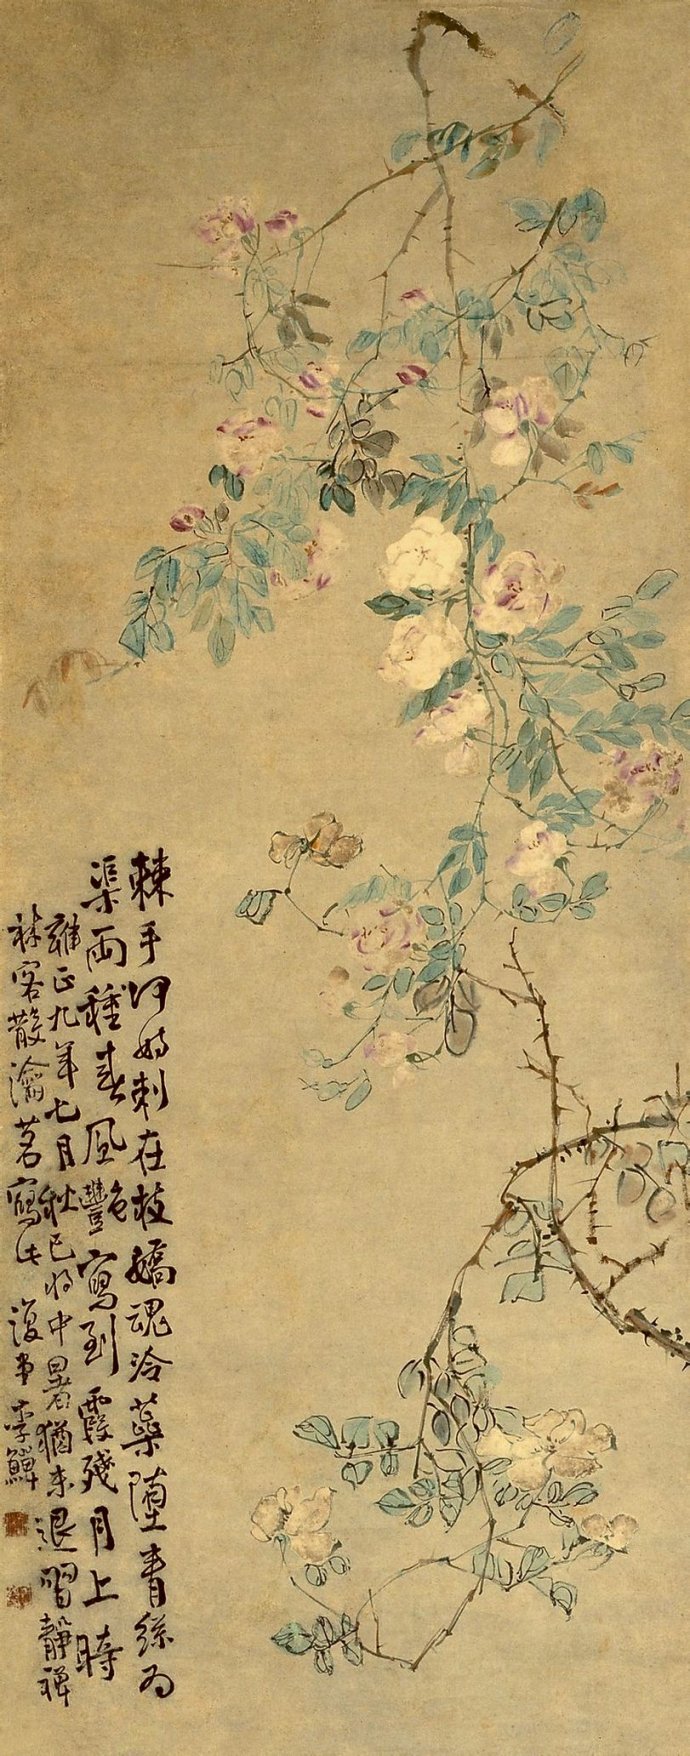 棘手何妨刺在枝嬌魂冷蘂墮青絲为
渠兩種春風艷寫到霞殘月上時
雍正九年七月秋已將中暑猶未退習靜禪
林客散瀹茗寫此復堂李鱓